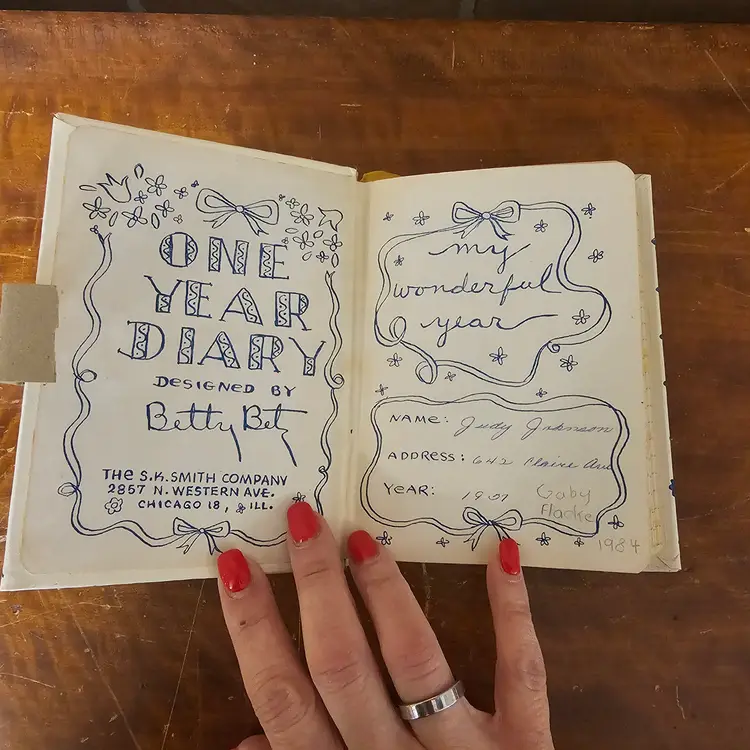 ONE
YEAR
DIARY
DESIGNED BY
Betty Betz
THE S.K. SMITH COMPANY
2857 N. WESTERN AVE.
CHICAGO 18, ILL.
my
wonderful
year
NAME: Judy Johnson
ADDRESS: 642 Claire Ave
YEAR:
Gaby
1984